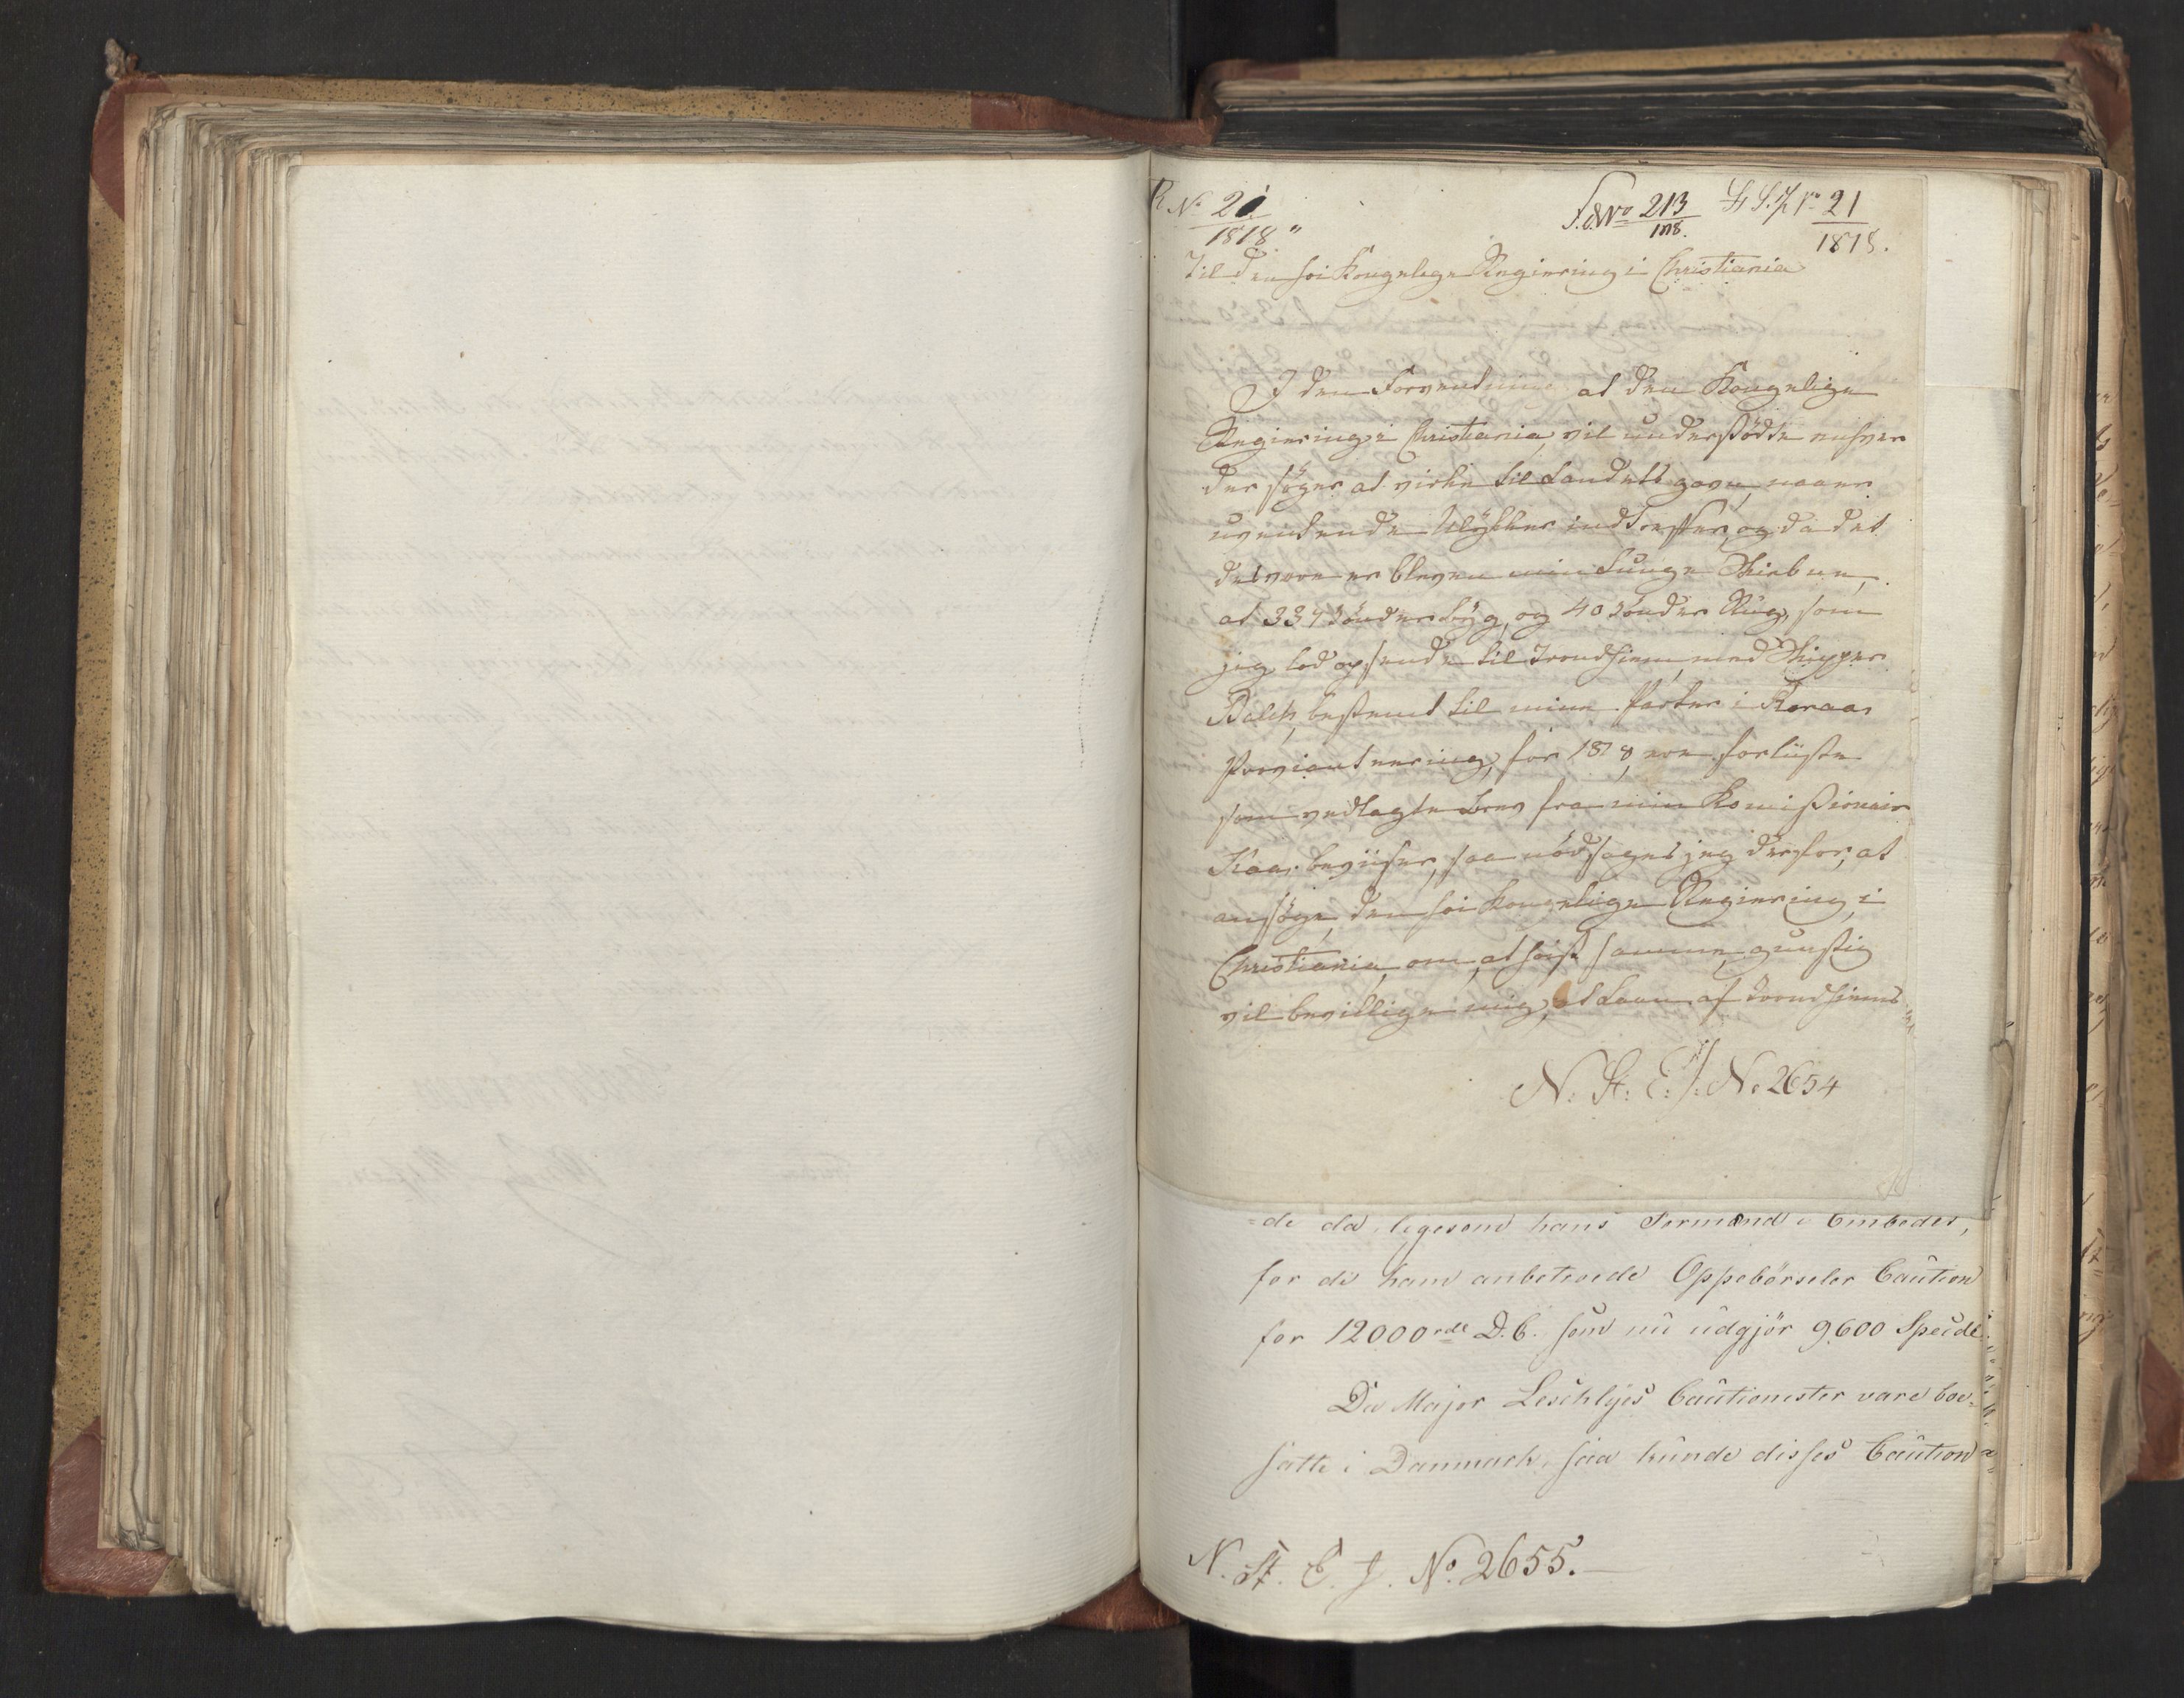 R No 21
1818 "
S.d. No 213
1818.
No 21
1818.
Til den höi Kongelige Regiering i Christiania
I den Forventning at den Kongelige
Regiering i Christiania, vil understödte enhver
der söger at virke til Landets gavn, naaer
uventende Ulykker indtreffer, og da det
desvære er bleven min tunge Skiebne,
at 337 Tönder Byg, og 40 Tönder Rug, som
jeg lod opsende til Trondhiem, med Skipper
Balck, bestemt til mine Parter i Röraas
Proviantering, for 1818, ere forliiste
som vedlagte Brev fra min Komissionair
Kaas beviiser, saa nödsages jeg derfor, at
ansöge, den höi Kongelige Regiering, i
Christiania, om, at höist samme, gunstig
vil bevillige mig, et Laan af Trondhiems
N: St: E: J: No 2654
=de da, ligesom hans Formand i Embedet,
for de ham anbetroede Oppebörseler Caution
for 12000 rdl D.C. som nu udgjör 9600 Specdl.
Da Major Leschlyes Cautionister vare boe-
satte i Danmark, saa kunde disses Caution
N. St. E. J. No. 2655.